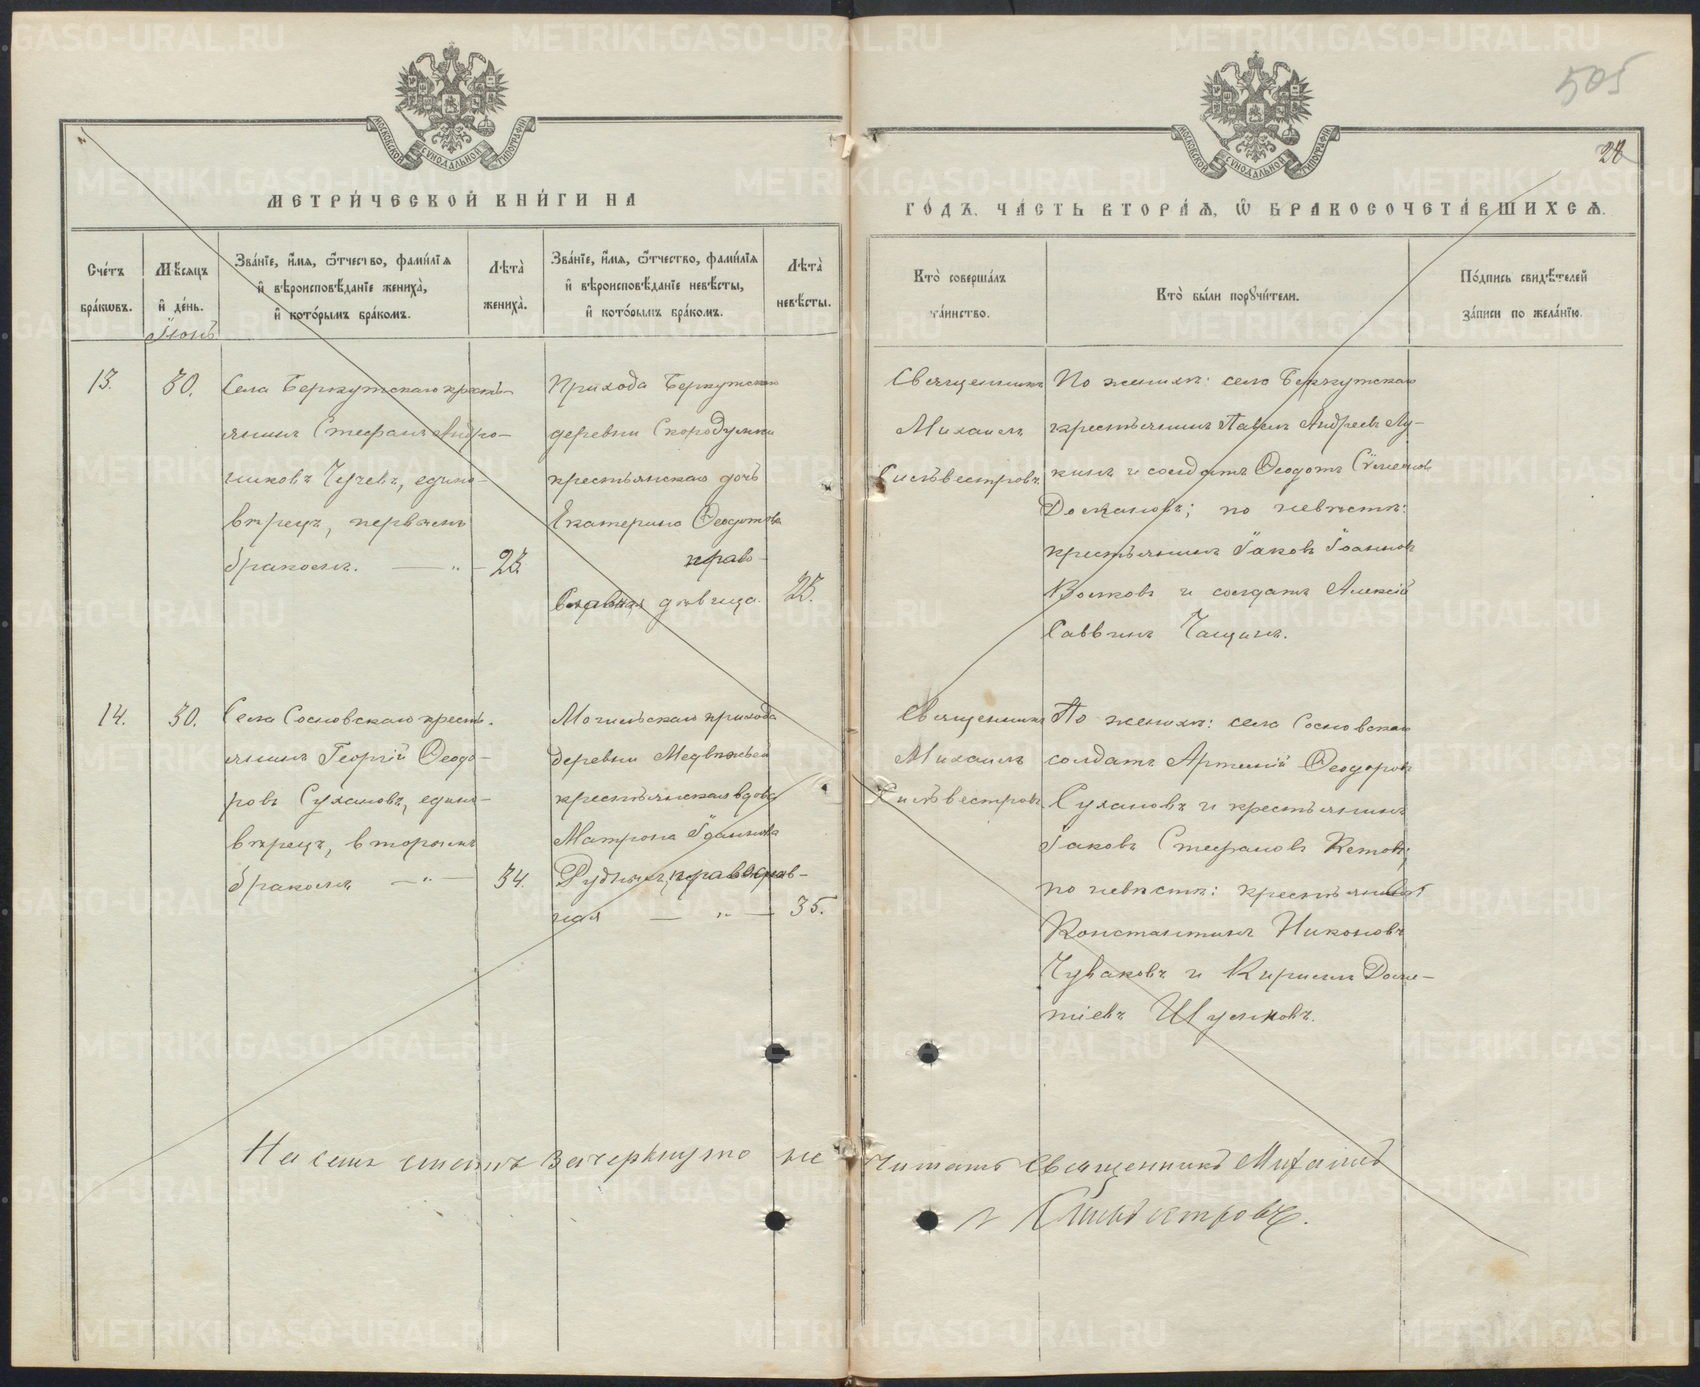 505
28
МОСКОВСКОЙ СУНОДАЛЬНОЙ ТИПОГРАФІИ
МОСКОВСКОЙ СУНОДАЛЬНОЙ ТИПОГРАФІИ
МЕТРИ́ЧЕСКОЙ КНИ́ГИ НА
ГО́ДЪ. ЧА́СТЬ ВТОРА́Ѧ, Ѡ҆ БРАКОСОЧЕТА́ВШИХСѦ.
Сче́тъ
бра́кωвъ.
Мѣ́сяцъ
и҆ де́нь.
Зва́нїе, и҆́мѧ, ѻ҆́тчество, фами́лїѧ
и҆ вѣроисповѣ́данїе жениха̀,
и҆ кото́рымъ бра́комъ.
Лѣ́та̀
жениха̀.
Зва́нїе, и҆́мѧ, ѻ҆́тчество, фами́лїѧ
и҆ вѣроисповѣ́данїе невѣ́сты,
и҆ кото́рымъ бра́комъ.
Лѣ́та̀
невѣ́сты.
Кто̀ соверша́лъ
та́инство.
Кто̀ бы́ли порꙋчи́тели.
По́дпись свидѣ́телей
за́писи по жела́нїю.
Іюнь
13.
30.
Села Беркутскаго кресть-
янинъ Стефанъ Андро-
никовъ Чегчевъ, едино-
верецъ, первымъ
бракомъ. — " —
23
Прихода Беркутскаго
деревни Скородумки
крестьянская дочь
Екатерина Ѳеодотова
право-
славная девица.
25.
Священникъ
Михаилъ
Сильвестровъ
По женихе: села Беркутскаго
крестьянинъ Павелъ Андреевъ Лу-
кинъ и солдатъ Ѳеодотъ Сѵмеоновъ
по невесте:
крестьянинъ Іаковъ Іоанновъ
Волковъ и солдатъ Алексій
Саввинъ Чащинъ.
14.
30.
Села Сосновскаго кресть-
янинъ Георгій Ѳеодо-
ровъ Сухановъ, едино-
верецъ, вторымъ
бракомъ — " —
34.
прихода
деревни Медвежьей
крестьянская вдова
Матрона Іоаннова
православ-
ная — " —
35.
Священникъ
Михаилъ
Сильвестровъ
По женихе: села Сосновскаго
солдатъ Артемій Ѳеодоровъ
Сухановъ и крестьянинъ
Іаковъ Стефановъ Кетовъ;
по невесте: крестьяне
Константинъ Никоновъ
Чуваковъ и Кириллъ Доме-
тіевъ Шумковъ.
На семъ листе зачеркнуто не читать Священникъ Михаилъ
Сильвестровъ.
METRIKI.GASO-URAL.RU